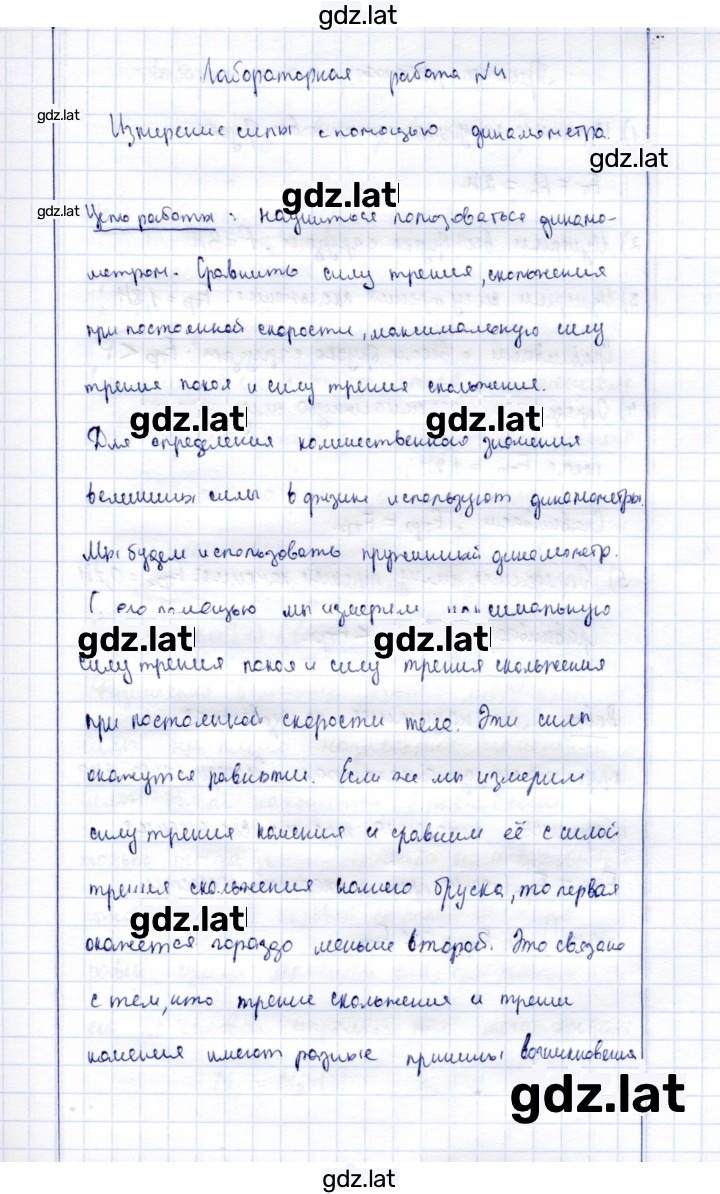 gdz.lat
Лабораторная работа №4
gdz.lat
Измерение силы с помощью динамометра.
gdz.lat
gdz.lat
gdz.lat
Цель работы: научиться пользоваться динамо-
метром. Сравнить силу трения, скольжения
при постоянной скорости, максимальную силу
трения покоя и силу трения скольжения.
gdz.lat gdz.lat
Для определения количественного значения
величины силы в физике используют динамометры.
Мы будем использовать пружинный динамометр.
С его помощью мы измерим максимальную
gdz.lat gdz.lat
силу трения покоя и силу трения скольжения
при постоянной скорости тела. Эти силы
окажутся равными. Если же мы измерим
силу трения качения и сравним её с силой
трения скольжения нашего бруска, то первая
gdz.lat
окажется гораздо меньше второй. Это связано
с тем, что трение скольжения и трение
качения имеют разные причины возникновения
gdz.lat
gdz.lat